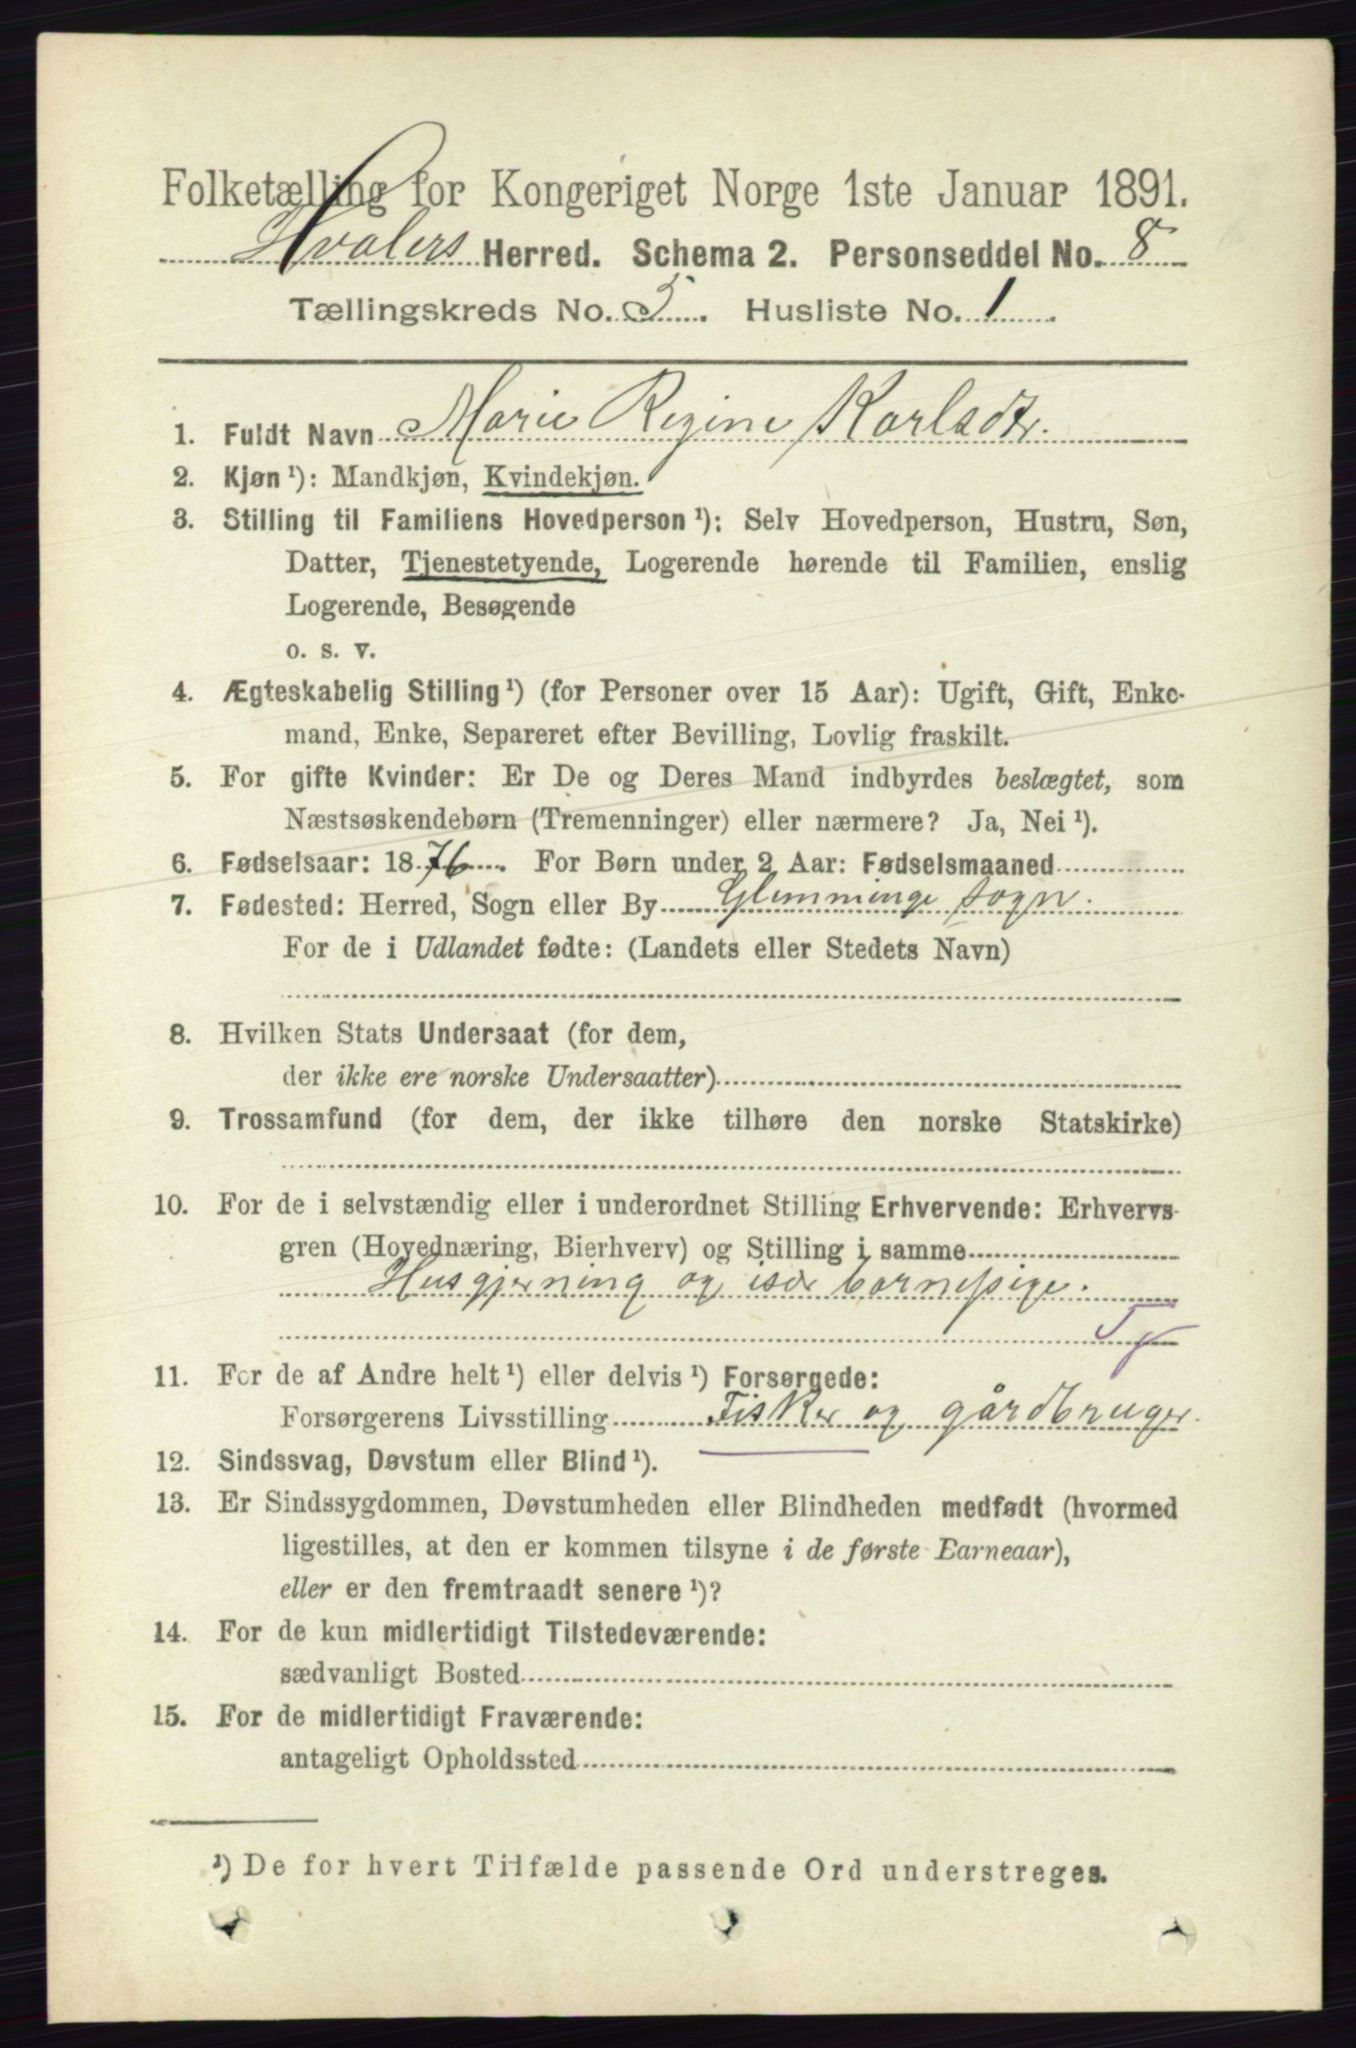 Folketælling for Kongeriget Norge 1ste Januar 1891.
Hvalers Herred. Schema 2. Personseddel No. 8
Tællingskreds No. 5. Husliste No. 1.
1. Fuldt Navn Marie Regine Karlsdtr.
2. Kjøn ¹): Mandkjøn, Kvindekjøn.
3. Stilling til Familiens Hovedperson ¹): Selv Hovedperson, Hustru, Søn,
Datter, Tjenestetyende, Logerende hørende til Familien, enslig
Logerende, Besøgende
o. s. v.
4. Ægteskabelig Stilling ¹) (for Personer over 15 Aar): Ugift, Gift, Enke-
mand, Enke, Separeret efter Bevilling, Lovlig fraskilt.
5. For gifte Kvinder: Er De og Deres Mand indbyrdes beslægtet, som
Næstsøskendebørn (Tremenninger) eller nærmere? Ja, Nei ¹).
6. Fødselsaar: 1876. For Børn under 2 Aar: Fødselsmaaned
7. Fødested: Herred, Sogn eller By Glemminge sogn.
For de i Udlandet fødte: (Landets eller Stedets Navn)
8. Hvilken Stats Undersaat (for dem,
der ikke ere norske Undersaatter)
9. Trossamfund (for dem, der ikke tilhøre den norske Statskirke)
10. For de i selvstændig eller i underordnet Stilling Erhvervende: Erhvervs-
gren (Hovednæring, Bierhverv) og Stilling i samme
Husgjerning og især barnepige.
Ty
11. For de af Andre helt ¹) eller delvis ¹) Forsørgede:
Forsørgerens Livsstilling Fisker og gårdbruger.
12. Sindssvag, Døvstum eller Blind ¹).
13. Er Sindssygdommen, Døvstumheden eller Blindheden medfødt (hvormed
ligestilles, at den er kommen tilsyne i de første Barneaar),
eller er den fremtraadt senere ¹)?
14. For de kun midlertidigt Tilstedeværende:
sædvanligt Bosted
15. For de midlertidigt Fraværende:
antageligt Opholdssted
¹) De for hvert Tilfælde passende Ord understreges.